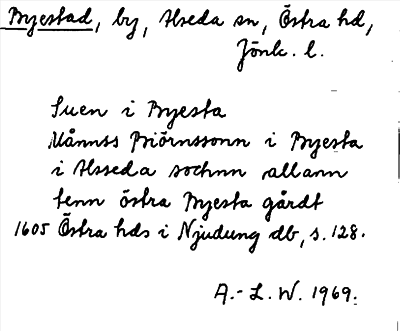 Bryestad, by, Alseda sn, Östra hd,
Jönk. l.
Suen i Bryesta
Månnss Biörnssonn i Bryesta
i Alsseda sochnn allann
tenn östra Bryesta gårdt
1605 Östra hds i Njudung db, s. 128.
A.-L. W. 1969.